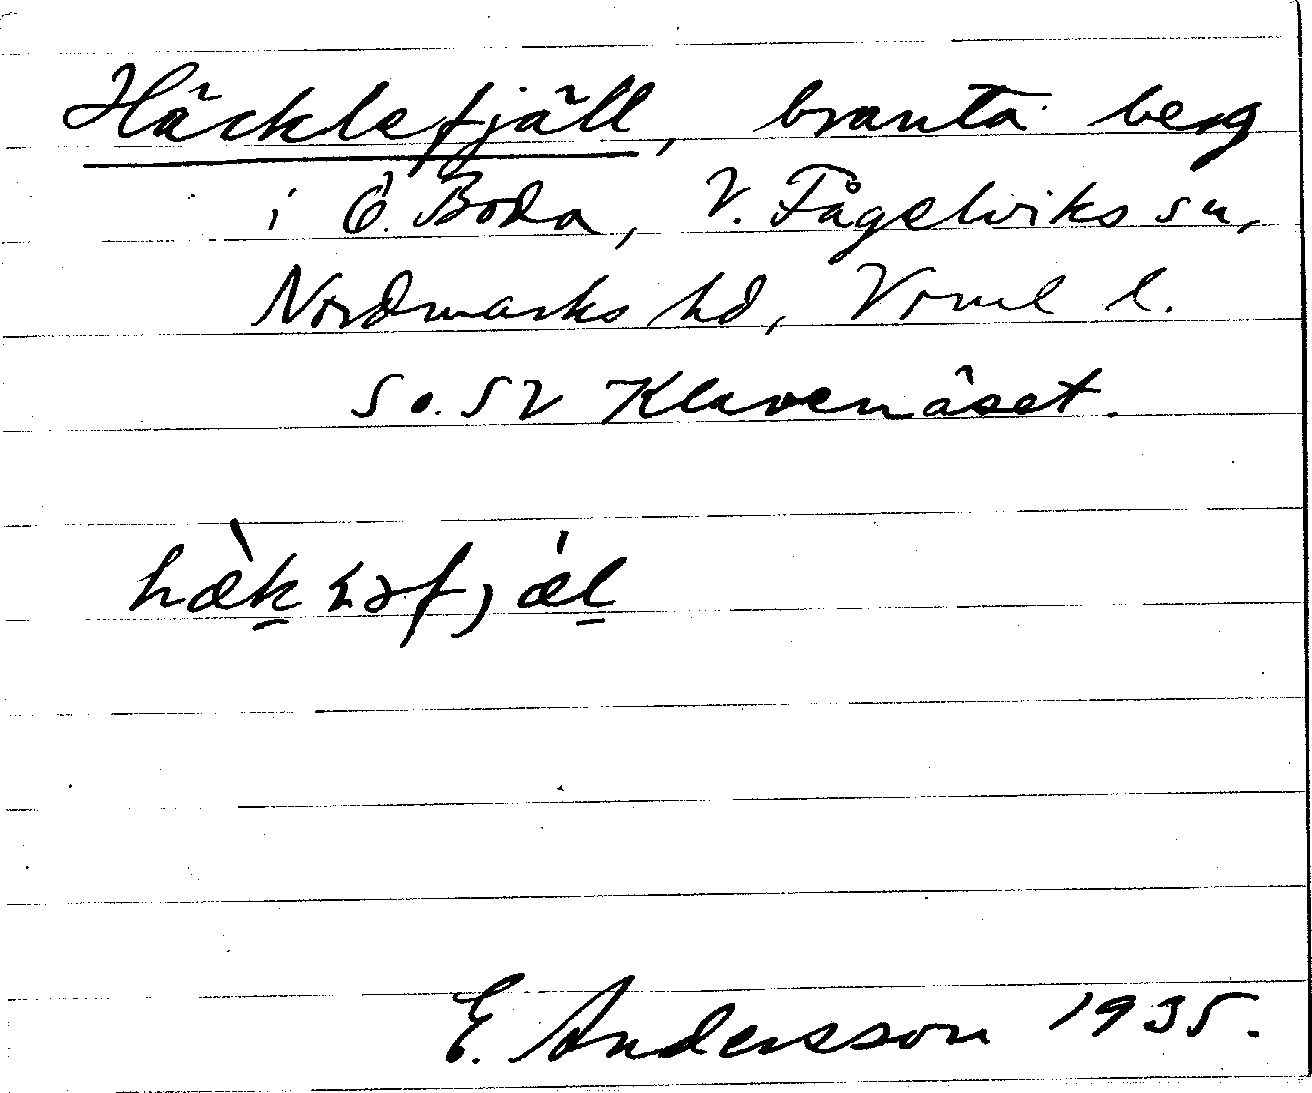 Häcklefjäll, branta berg
i Ö. Boda, V. Fågelviks sn,
Nordmarks hd, Vrml l.
S o. SV Klavenäset.
E. Andersson 1935.